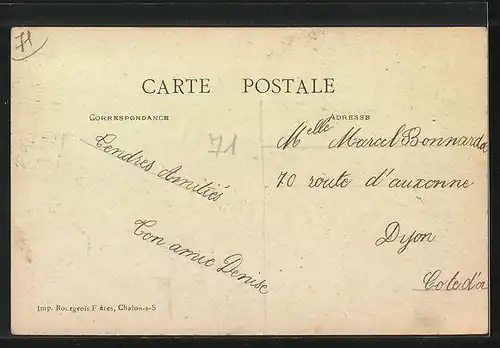 71
CARTE POSTALE
CORRESPONDANCE
ADRESSE
71
Tendres Amitiés
Ton amie Denise
Melle Marcel Bonnardot
70 route d'auxonne
Dijon
Cote d'or
Imp. Bourgeois Frères, Chalon-s-S